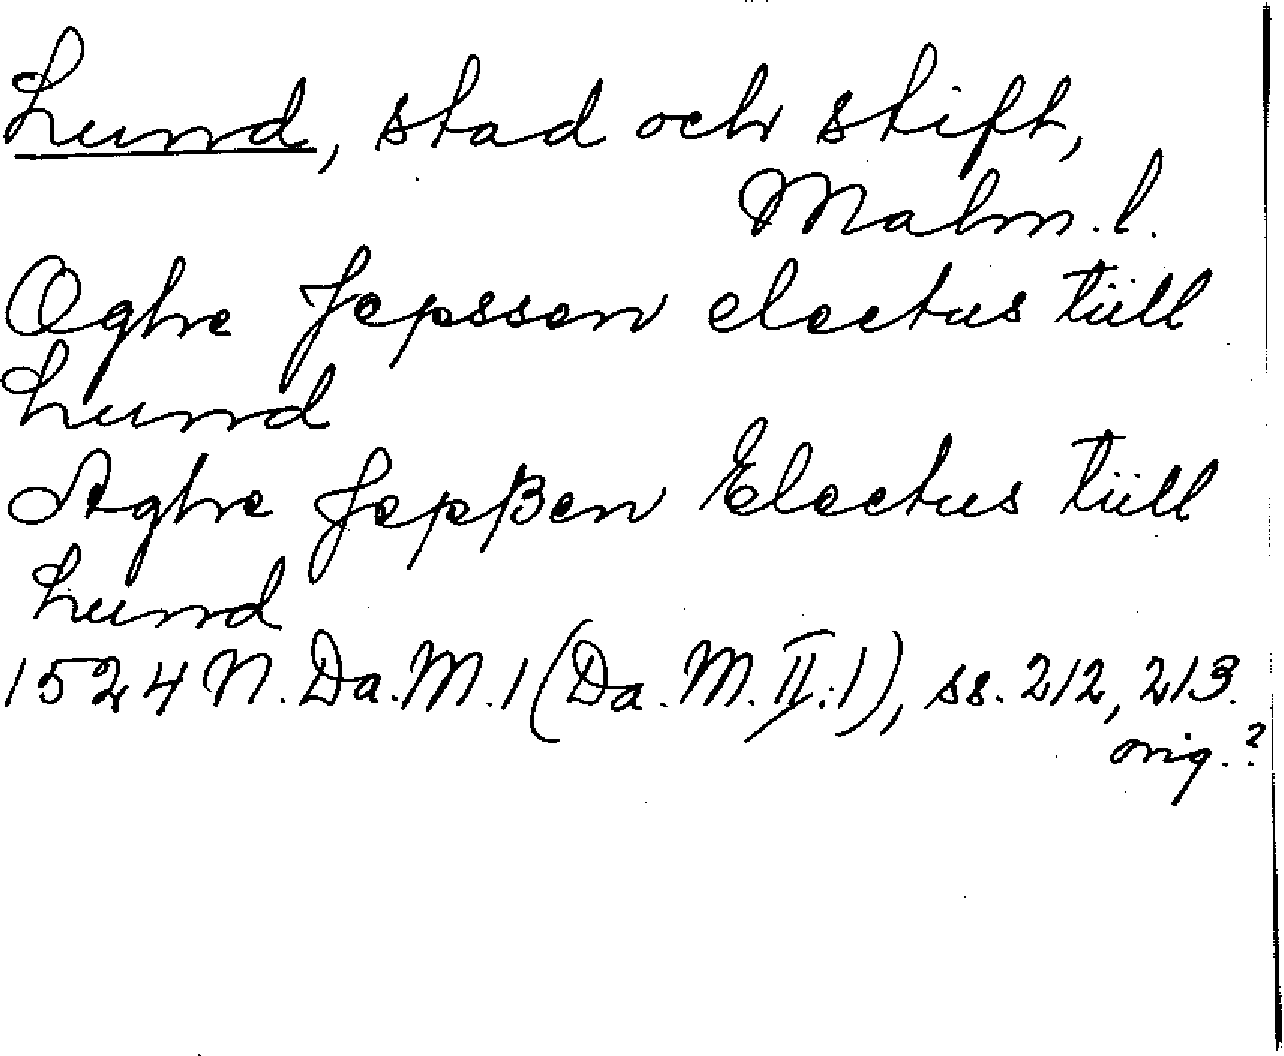 Lund, stad och stift,
Malm. l.
Oghe Jepssen electus tüll
Lund
Aghe Jepßen Electus tüll
Lund
1524 N. Da. M. 1 (Da. M. II. 1), ss. 212, 213.
orig.?